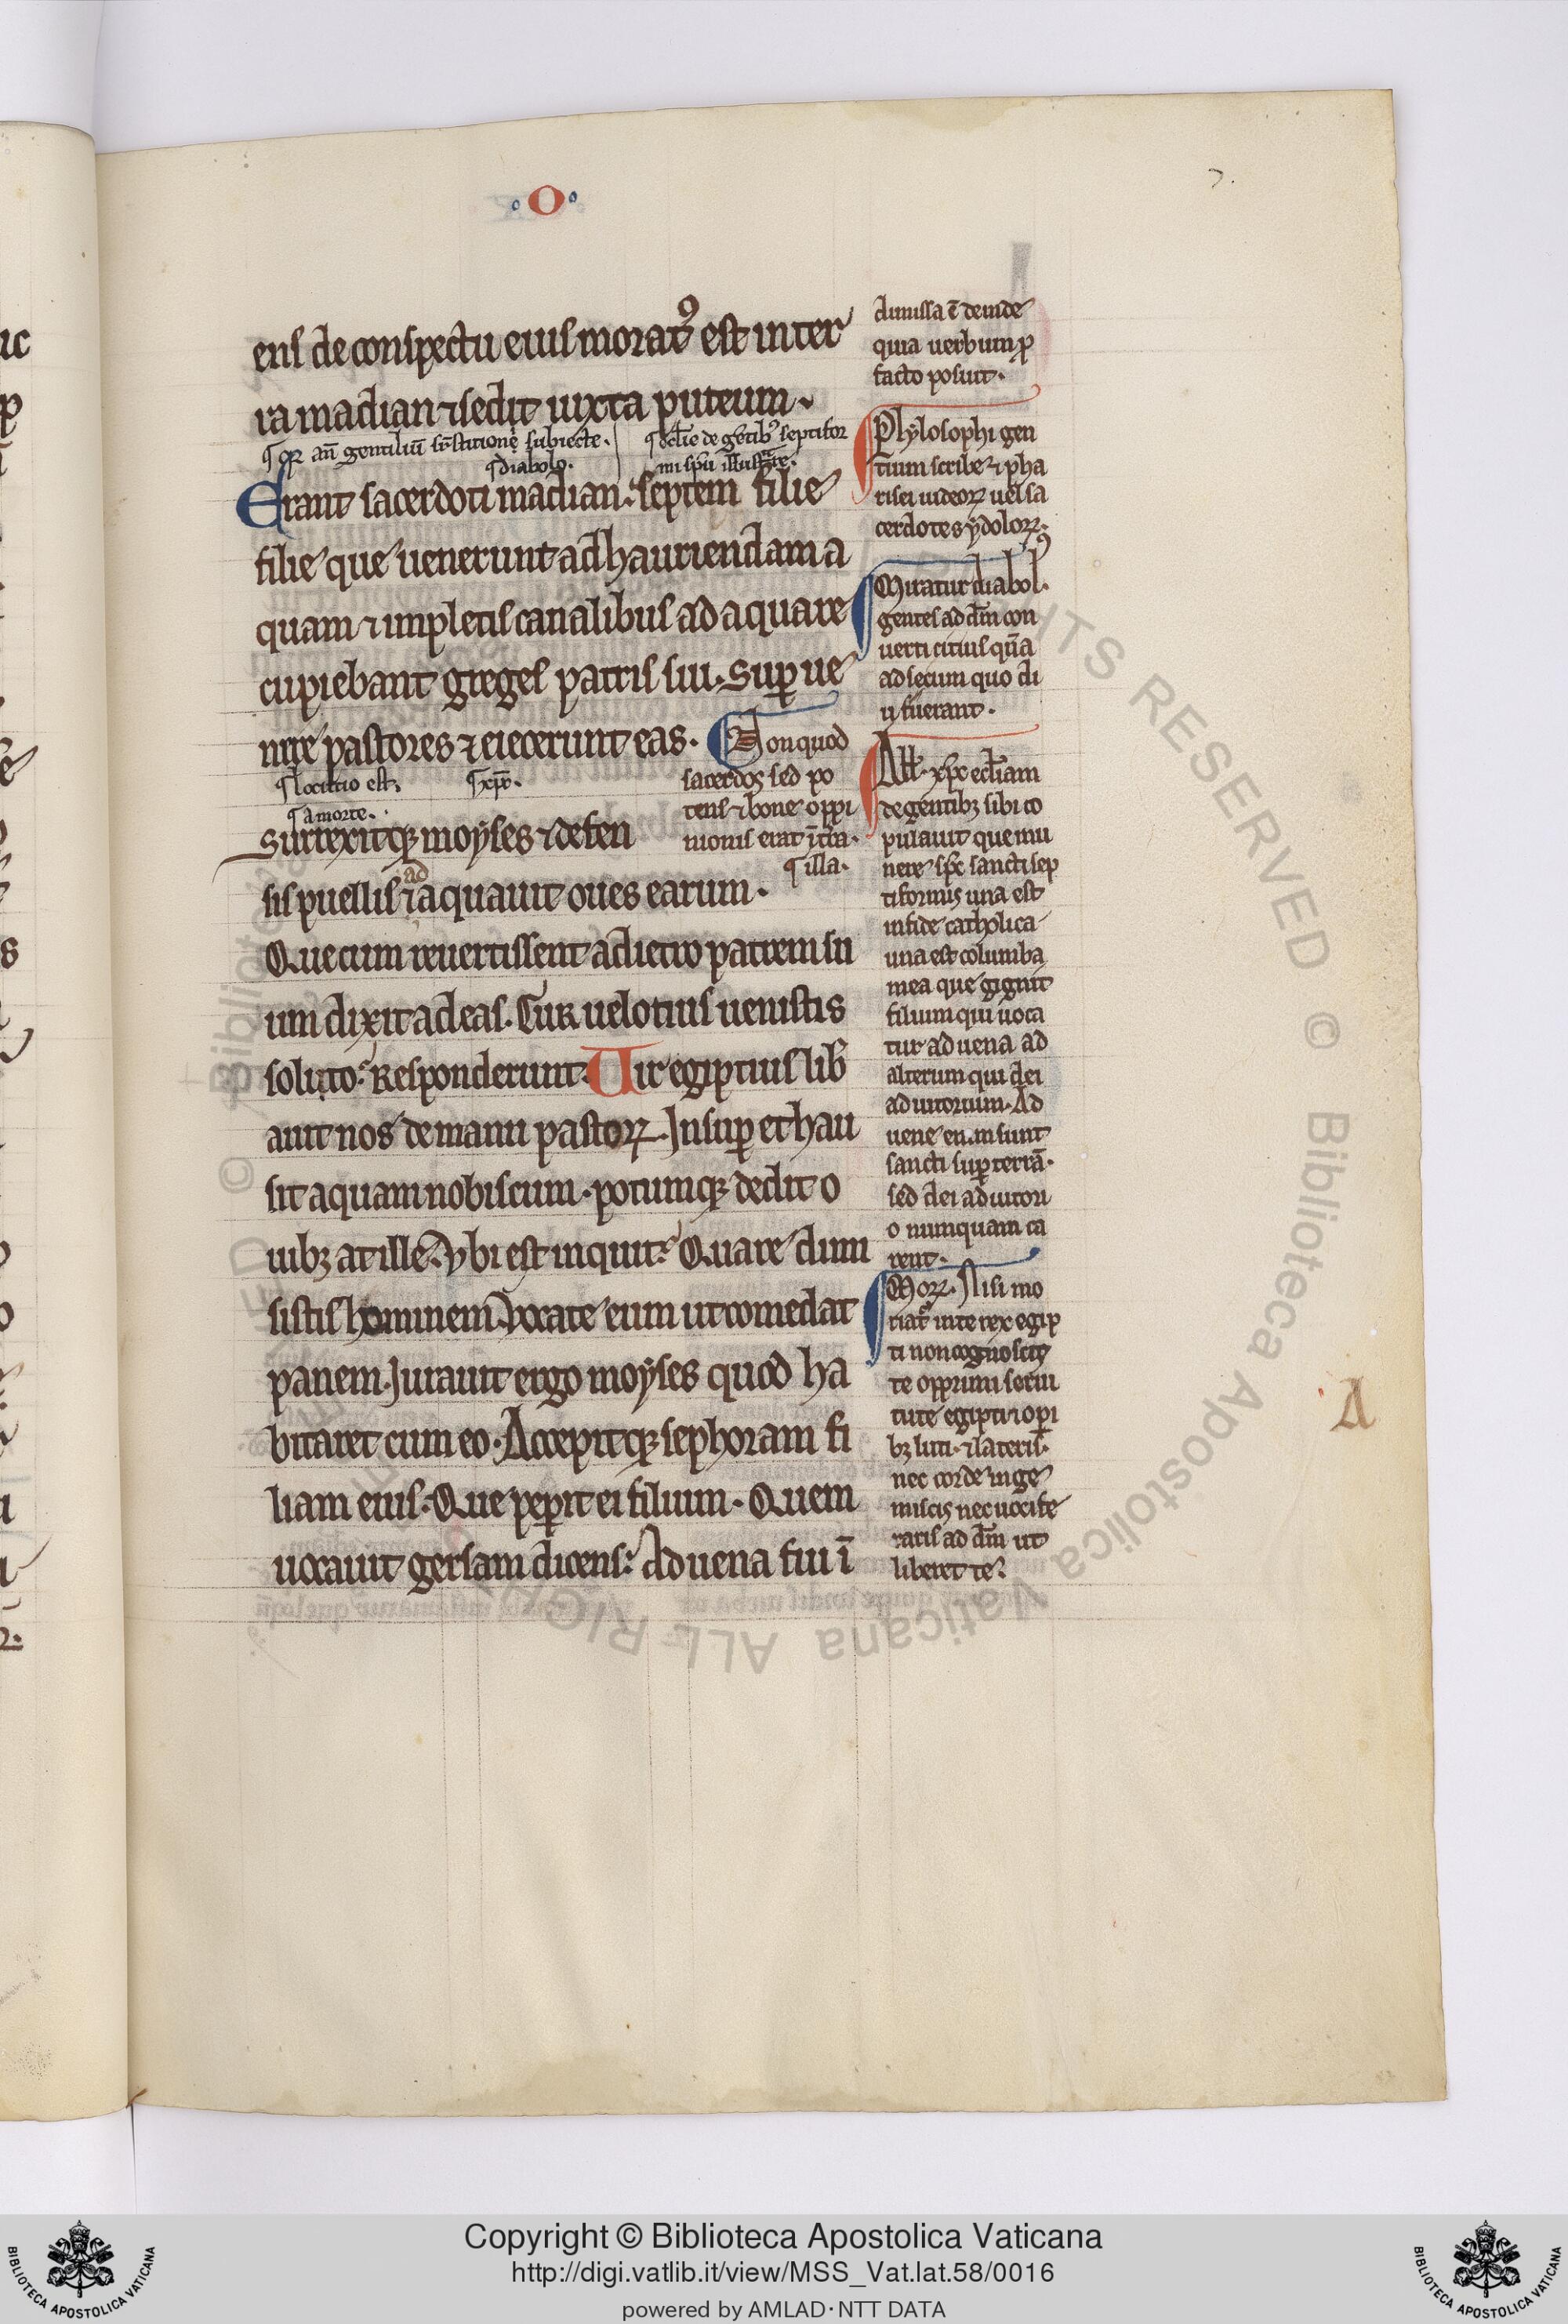 7.
·O·
ens de conspectu eius morat᷒ est in ter
ra madian ⁊ sedit iuxta puteum.
¶ diabolo.
Erant sacerdoti madian: septem filie
filie que uenerunt ad hauriendam a
quam ⁊ impletis canalibus adaquare
cupiebant greges patris sui. Sup̱ ue
nire pastores ⁊ eiecerunt eas.
¶ Non quod
sacerdos sed po
tens ⁊ bone oppi
nionis erat ī t̄ra.
¶ illa.
¶ locutio est. ¶ xp̄c.
¶ a morte.
Surrexitqꝫ moyses ⁊ defen
ad
sis puellis ⁊ aquauit oues earum.
Que cum reuertissent ad ietro patrem su
um dixit ad eas. Cur uelotius uenistis
solito? Responderunt. Uir egiptius lib̄
auit nos de manu pastoꝝ. Insuꝑ et hau
sit aquam nobiscum. potumqꝫ dedit o
uibꝫ at ille. ybi est inquit? Quare dimi
sistis hominem. Vocate eum ut comedat
panem. Jurauit ergo moyses quod ha
bitaret cum eo. Accepitqꝫ sephoram fi
liam eius. Que peꝑit ei filium. Quem
uocauit gersam dicens: Aduena fui ī
dimissa ē deinde
quia uerbum ꝓ
facto posuit.
Phylosophi gen
tium scribe ⁊ pha
risei iudeoꝝ uel sa
cerdotes ydoloꝝ.
Miratur diabol᷒.
gentes ad dm̄ con
uerti citius qn̄a
ad secum quo di
ij fuerant.
All̄. xp̄c eccl̄iam
de gentibꝫ sibi co
pulauit que mu
nere sp̄c sancti sep
tiformis una est
in fide catholica
una est columba
mea que gignit
filium qui uoca
tur aduena ad
alterum qui dei
adiutorium. Ad
uene enim sunt
sancti suꝑ terrā.
sed dei adiutori
o numquam ca
rent.
Moꝝ. Nisi mo
riat᷑ in te rex egip
ti non cognoscis
te opprimi serui
tute egipti ⁊ oꝑi
bꝫ luti. ⁊ lateris.
nec corde inge
miscis nec uocife
raris ad dm̄ ut
liberet te.
A
Copyright © Biblioteca Apostolica Vaticana
http://digi.vatlib.it/view/MSS_Vat.lat.58/0016
powered by AMLAD·NTT DATA
BIBLIOTECA APOSTOLICA VATICANA
BIBLIOTECA APOSTOLICA VATICANA
© Biblioteca Apostolica Vaticana ALL RIGHTS RESERVED